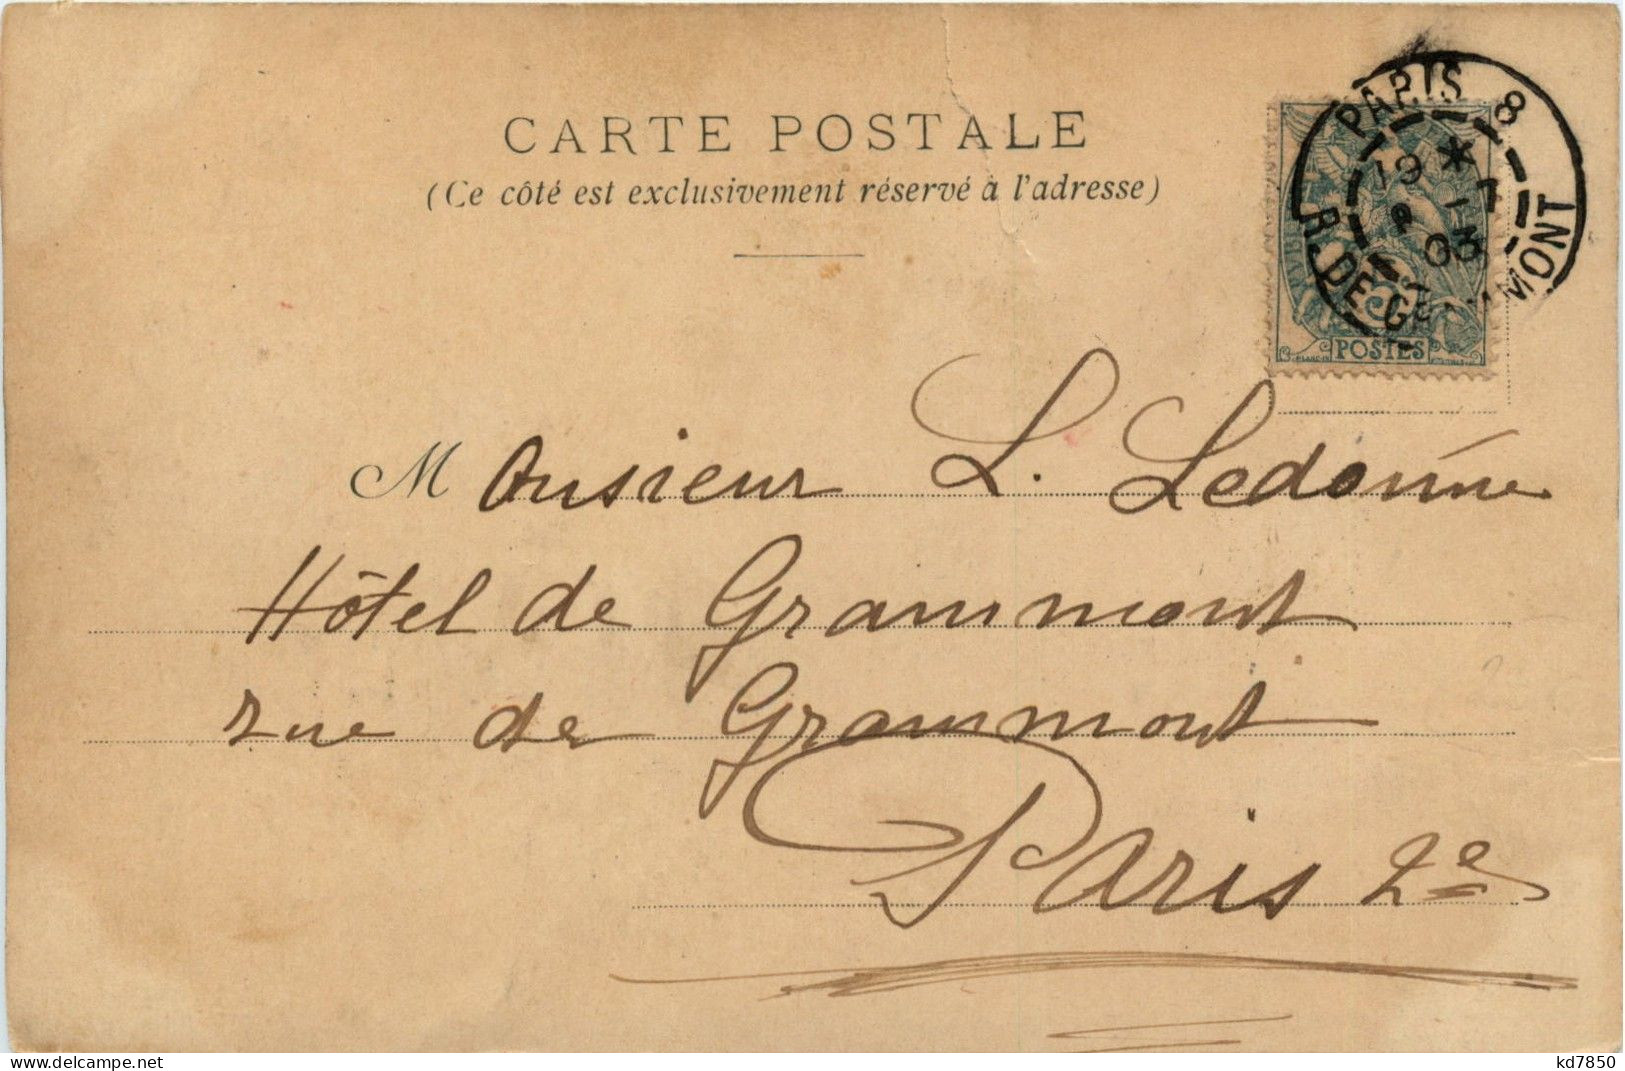 CARTE POSTALE
(Ce côté est exclusivement réservé à l'adresse)
PARIS 8
19 * 
7
03
R. DE GRAMMONT
5
POSTES
Monsieur L.
Hôtel de Grammont
rue de Grammont
Paris 2e
www.delcampe.net
kd7850